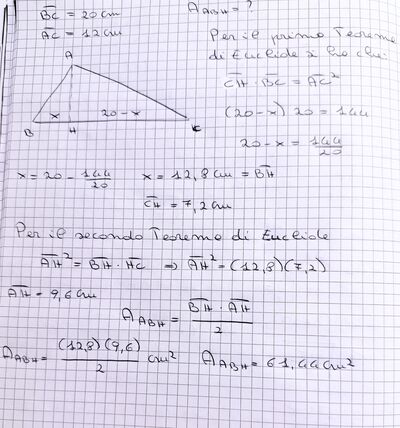 BC = 20 cm
AC = 12 cm
A_ABH = ?
Per il primo Teorema
di Euclide si ha che
CH · BC = AC²
(20-x) 20 = 144
20-x = 144/20
A
x
20-x
B
H
C
x = 20 - 144/20
x = 12,8 cm = BH
CH = 7,2 cm
Per il secondo Teorema di Euclide
AH² = BH · HC ⇒ AH² = (12,8)(7,2)
AH = 9,6 cm
A_ABH = BH · AH / 2
A_ABH = (12,8)(9,6) / 2 cm²
A_ABH = 61,44 cm²